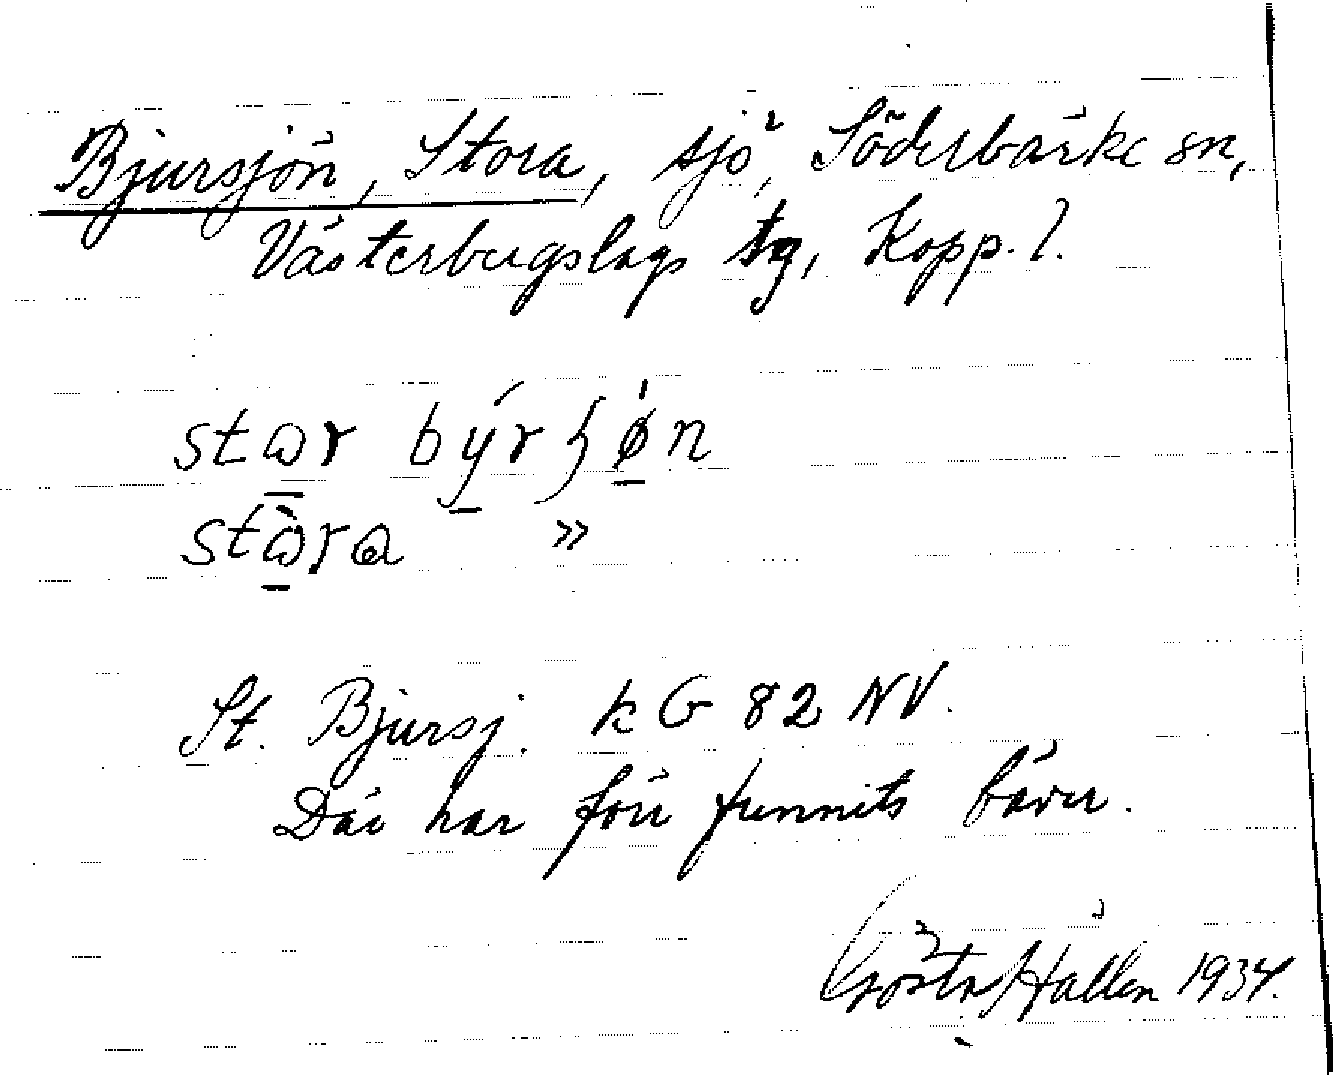 Bjursjön, Stora, sjö, Söderbärke sn,
Västerbergslags tg, Kopp. l.
stɷr bý̱rʃǿ̱n
stɷ̱̀ra »
St. Bjursj. k G 82 NV.
Där har förr funnits bäver.
Gösta Hallén 1934.